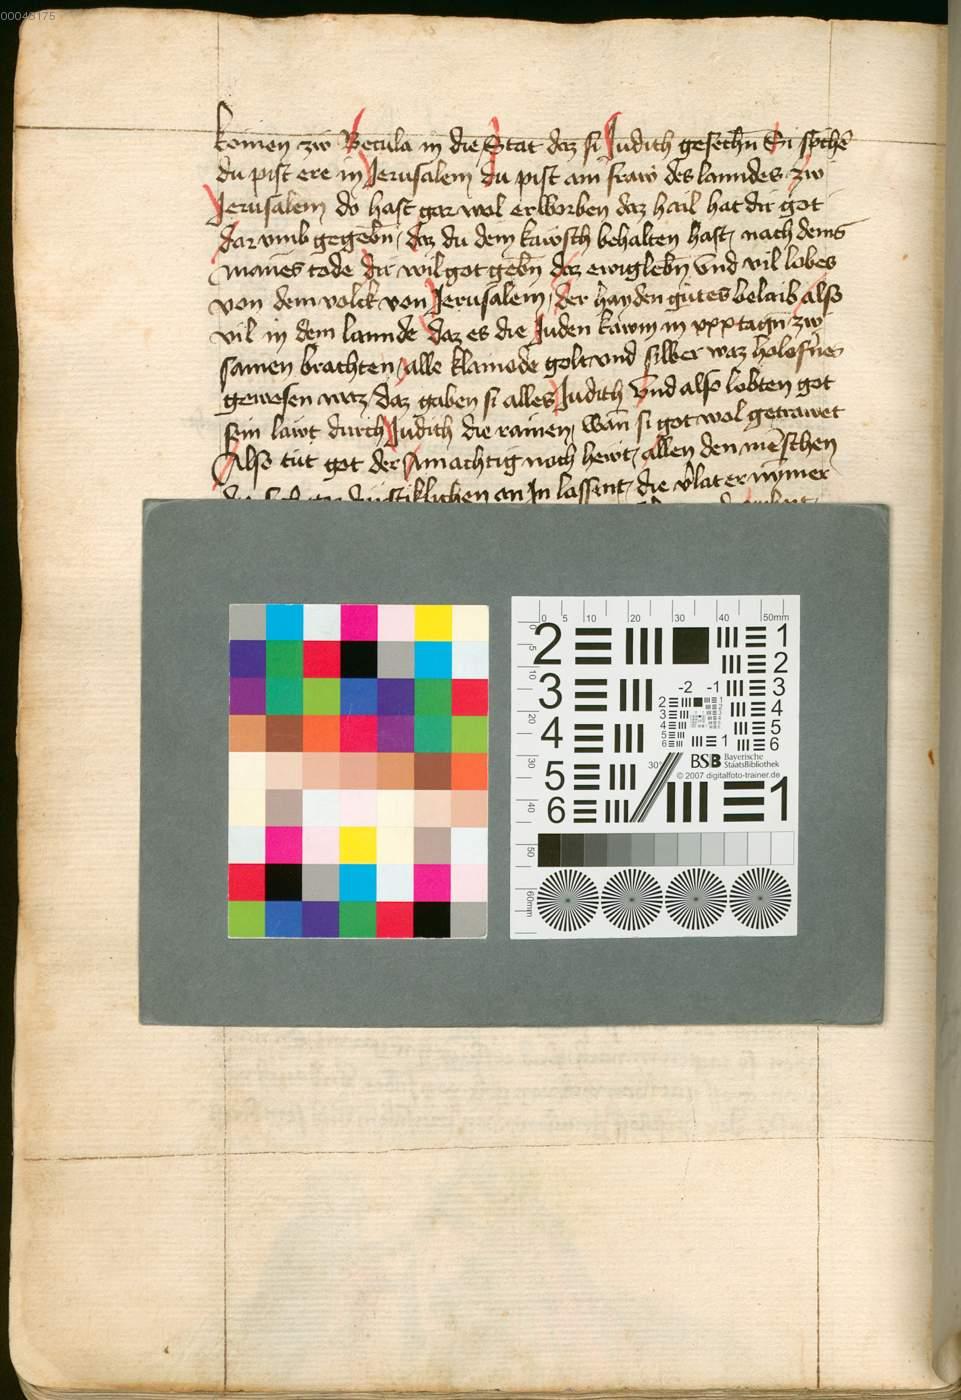 00048175
komen zw Betula in die Stat daz si Judith gesechn Si spche
du pist ere in Jerusalem du pist ain fraw des lanndes zw
Jerusalem do hast gar wol erworben daz hail hat dir got
dar vmb gegebn daz du dem kawsch behalten hast nach deins
manes tode dir wil got gebn daz ewig lebn vnd vil lobes
von dem volck von Jerusalem der hayden gutes belaib also
vil in dem lannde daz es die Juden kawm in xxx tagn zw
samen brachten alle klainode golt vnd silber waz holofnes
gewesen waz daz gaben si alles Judith vnd also lobten got
sein lawt durch Judith die rainen wan si got wol getrawet
Also tut got der Amachtig noch hewt allen den menschen
an In lassent die vlat er nymer
0 5 10 20 30 40 50mm
2 1
2
3 3
4 4
5 5
6 6
-2 -1
1
30°
BSB Bayerische
StaatsBibliothek
© 2007 digitalfoto-trainer.de
1
0 5 10 20 30 40 50 60mm